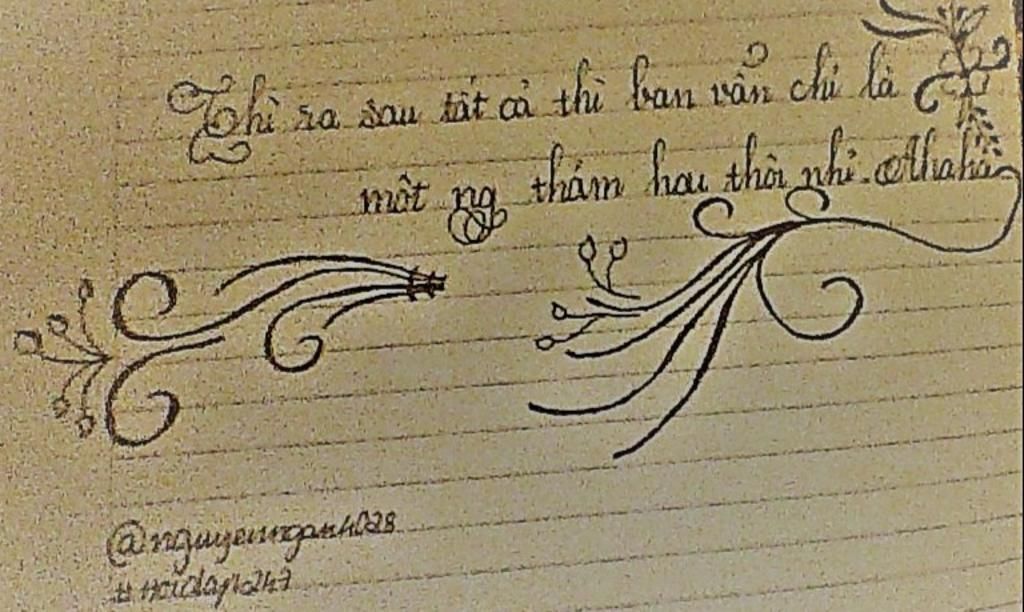 Thì ra sau tất cả thì bạn vẫn chỉ là
một ng thảm hại thôi nhỉ. Ahaha
@nguyenngan4028
#hoidap247